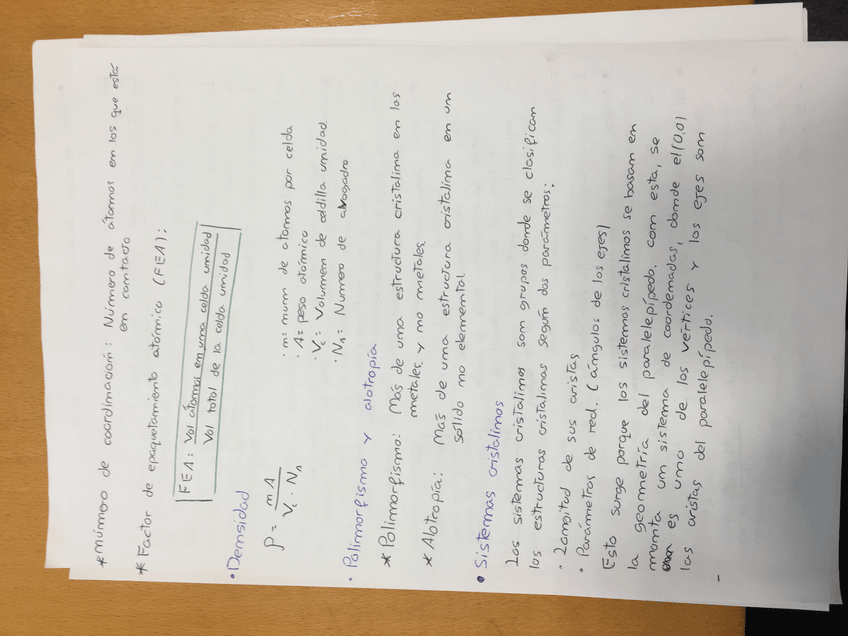 * número de coordinación: Número de átomos en los que está
en contacto
* Factor de epaquetamiento atómico (FEA):
FEA: Vol átomos en una celda unidad
Vol total de la celda unidad
• Densidad
ρ = nA
Vc · NA
· n= num de atomos por celda
· A= peso atómico
· Vc: Volumen de celdilla unidad.
· NA: Numero de avogadro
• Polimorfismo y alotropía
* Polimorfismo: Más de una estructura cristalina en los
metales y no metales.
* Alotropía: Mas de una estructura cristalina en un
sólido no elemental.
• Sistemas cristalinos
Los sistemas cristalinos son grupos donde se clasifican
las estructuras cristalinas según dos parámetros:
· Longitud de sus aristas
· Parámetros de red. (ángulos de los ejes)
Esto surge porque los sistemas cristalinos se basan en
la geometría del paralelepípedo. con esta, se
monta un sistema de coordenadas, donde el (0,0)
es uno de los vértices y los ejes son
las aristas del paralelepípedo.
-